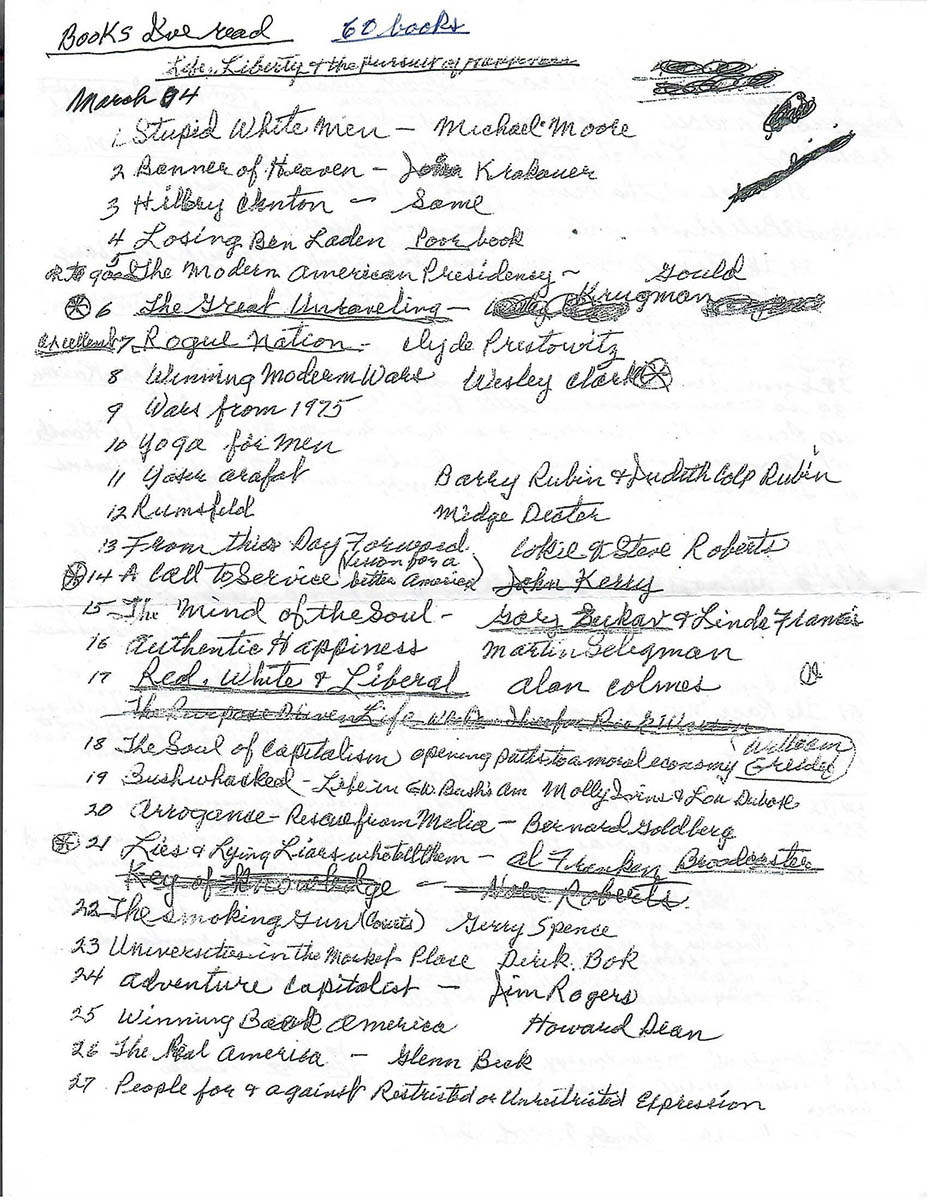 Books I've read 60 books
Life, Liberty & the Pursuit of Happiness
March 04
1 Stupid White Men - Michael Moore
2 Banner of Heaven - John Krakauer
3 Hillry Clinton - Same
4 Losing Ben Laden Poor book
5 The Modern American Presidency - Gould
6 The Great Unraveling - Krugman
Excellent 7. Rogue Nation - Clyde Prestowitz
8 Winning Modern Wars Wesley Clark
9 Wars from 1975
10 Yoga for Men
11 Yaser arafat Barry Rubin & Judith Colp Rubin
12 Rumsfeld Midge Decter
13 From this Day Forward Cokie & Steve Roberts
14 A Call to Service (Vision for a better America) John Kerry
15 The Mind of the Soul - Gary Zukav & Linda Francis
16 Authentic Happiness Martin Seligman
17 Red, White & Liberal Alan Colmes
The Purpose Driven Life
18 The Soul of Capitalism opening paths to a moral economy William Greider
19 Bushwhacked - Life in GW Bush's Am Molly Ivins & Lou Dubose
20 Arrogance - Rescue from Media - Bernard Goldberg
21 Lies & Lying Liars who tell them - Al Franken Broadcaster
Key of Knowledge - Nora Roberts
22 The Smoking Gun (Courts) Gerry Spence
23 Universities in the Market Place Derek Bok
24 Adventure Capitalist - Jim Rogers
25 Winning Back America Howard Dean
26 The Real America - Glenn Beck
27 People for & against Restricted or Unrestricted Expression